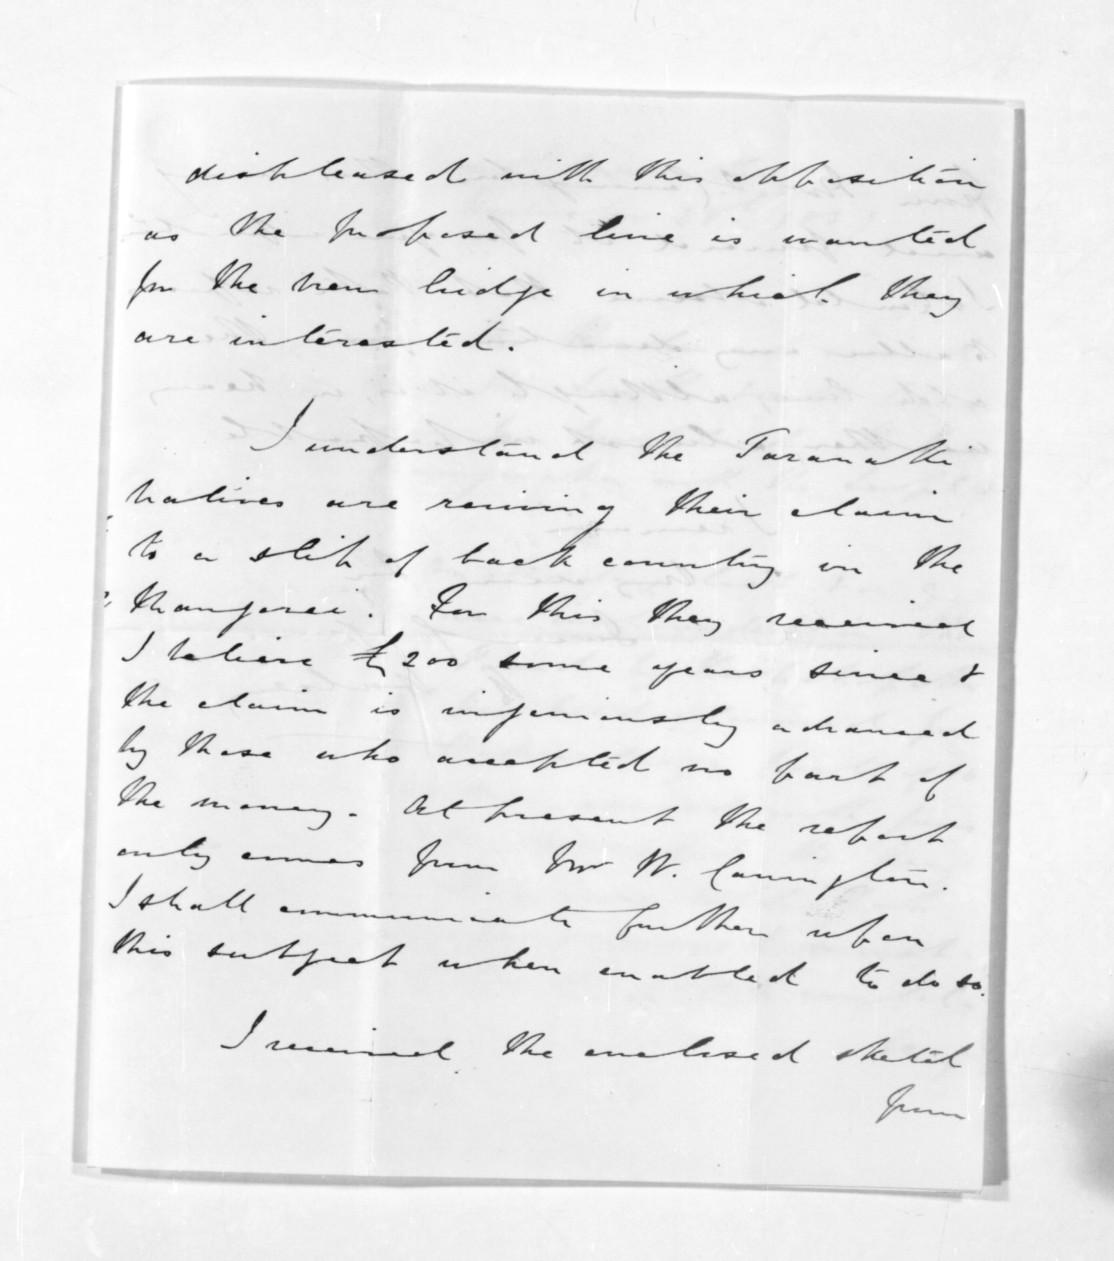 displeased with this opposition
as the proposed line is wanted
for the new bridge in which they
are interested.
I understand the Taranaki
natives are reviving their claim
to a slip of back country in the
Whangarei. For this they received
I believe £200 some years since &
the claim is ingeniously advanced
by those who accepted no part of
the money. At present the report
only comes from Mr W. Carrington.
I shall communicate further upon
this subject when enabled to do so.
I received the enclosed sketch
from